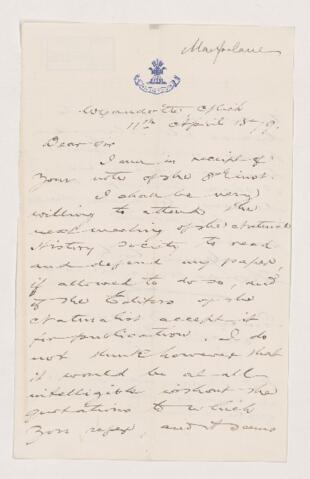 Macfarlane
Wyandotte Mich
11th April 1879.
Dear Sir
I am in receipt of
your note of the 8th inst.
I shall be very
willing to attend the
next meeting of the Natural
History Society to read
and defend my paper,
if allowed to do so, and
if the Editors of the
Naturalist accept it
for publication. I do
not think however that
it would be at all
intelligible without the
quotations to which
you refer, and it seems